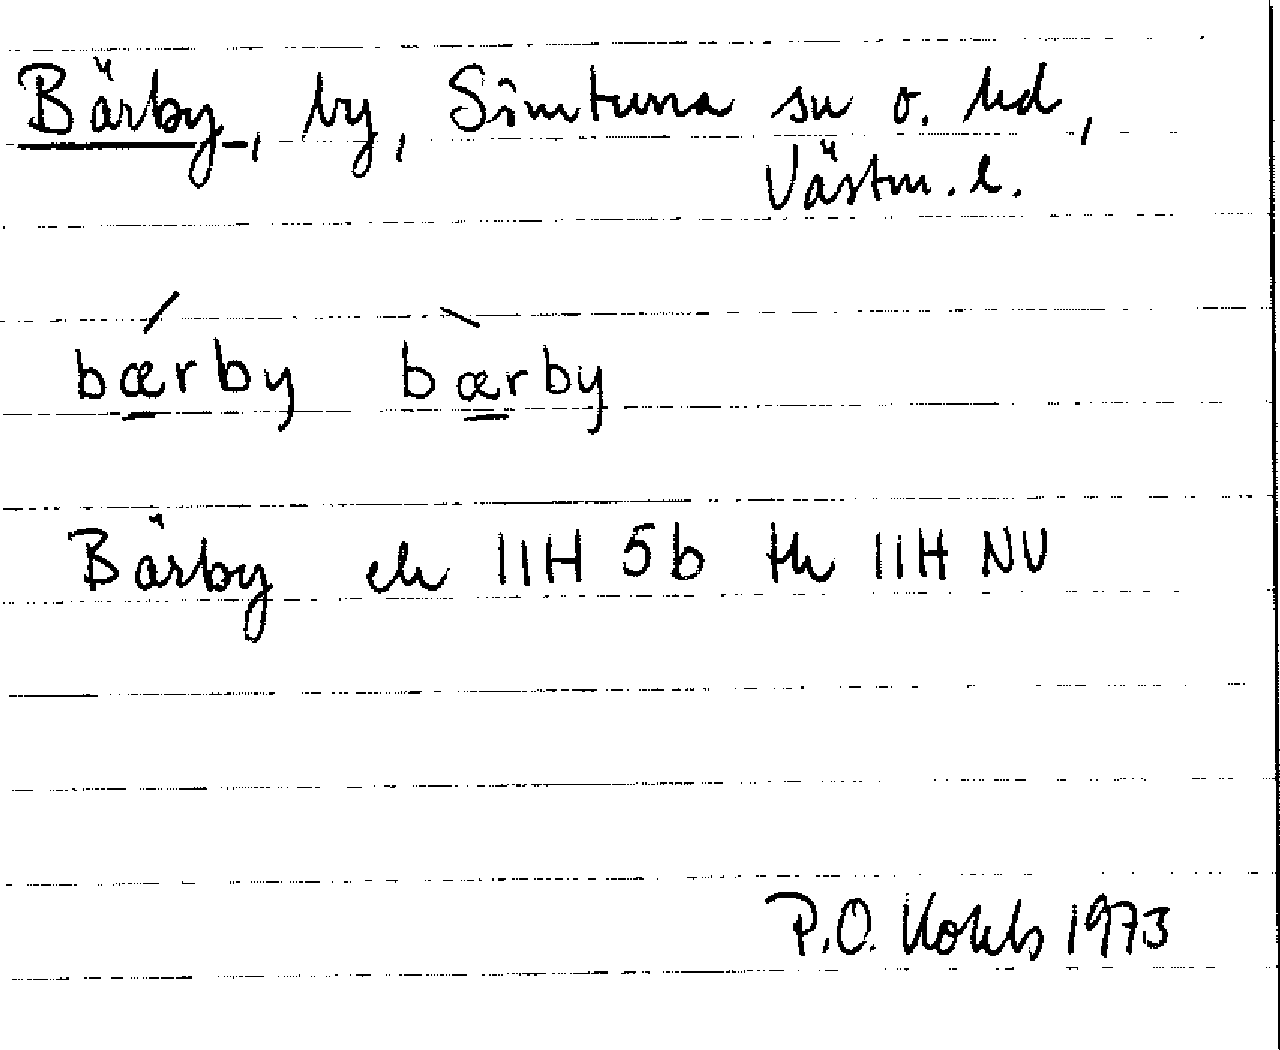 Bärby, by, Simtuna sn o. hd,
Västm. l.
bǽrby bæ̀rby
Bärby ek 11H 5b tk 11H NV
P.O. 1973